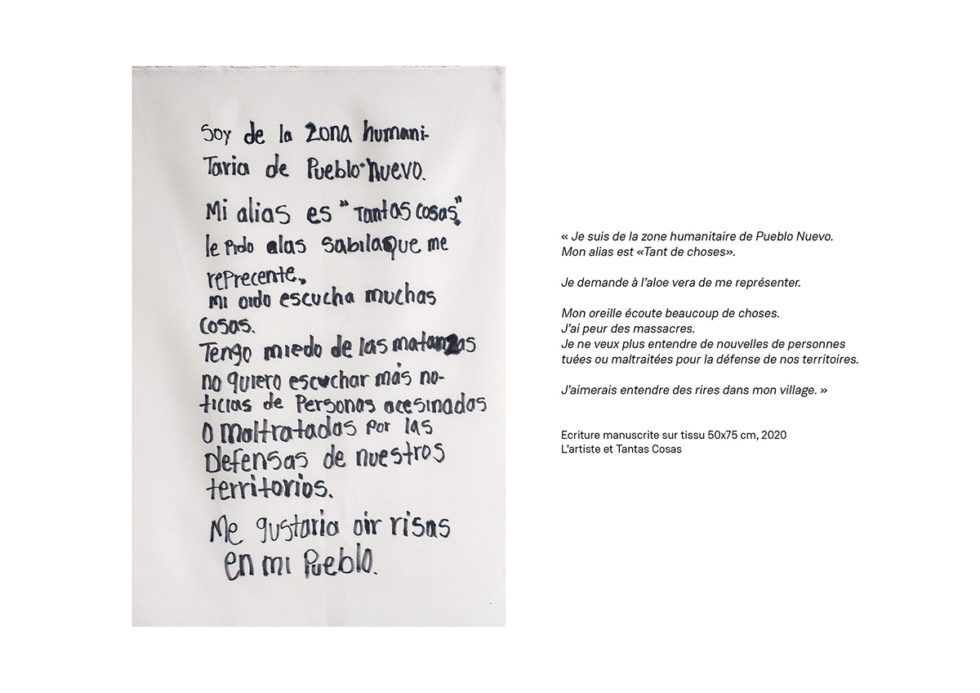 Soy de la zona humani-
Taria de Pueblo nuevo.
Mi alias es "Tantas cosas".
le Pido alas sabilas que me
rePrecente,
mi oido escucha muchas
cosas.
Tengo miedo de las matanzas
no quiero escuchar más no-
ticias de Personas acesinadas
o maltratadas por las
Defensas de nuestros
territorios.
Me gustaria oir risas
en mi Pueblo.
« Je suis de la zone humanitaire de Pueblo Nuevo.
Mon alias est «Tant de choses».
Je demande à l'aloe vera de me représenter.
Mon oreille écoute beaucoup de choses.
J'ai peur des massacres.
Je ne veux plus entendre de nouvelles de personnes
tuées ou maltraitées pour la défense de nos territoires.
J'aimerais entendre des rires dans mon village. »
Ecriture manuscrite sur tissu 50x75 cm, 2020
L'artiste et Tantas Cosas